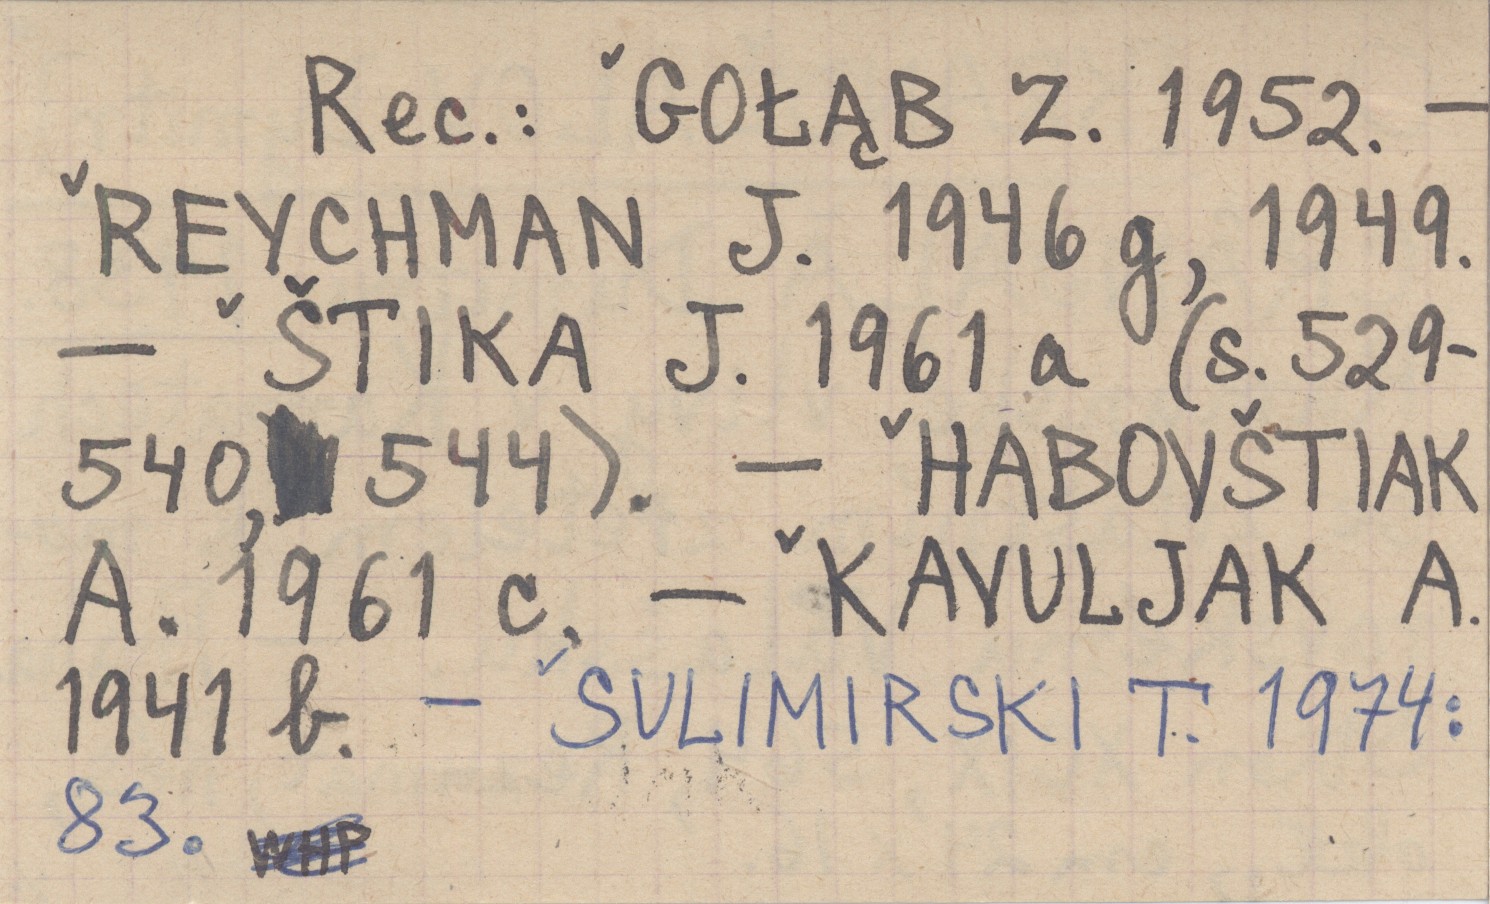 Rec.: ˇGOŁĄB Z. 1952. —
ˇREYCHMAN J. 1946 g, 1949.
— ˇŠTIKA J. 1961 a (s. 529-
540, 544). — ˇHABOVŠTIAK
A. 1961 c. — ˇKAVULJAK A.
1941 b. — ˇSULIMIRSKI T. 1974:
83. WHP